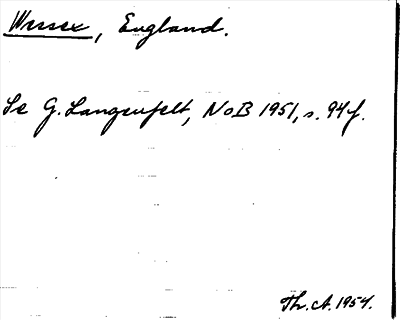 Wessex, England.
Se G. Langenfelt, NoB 1951, s. 94f.
Th. A. 1954.